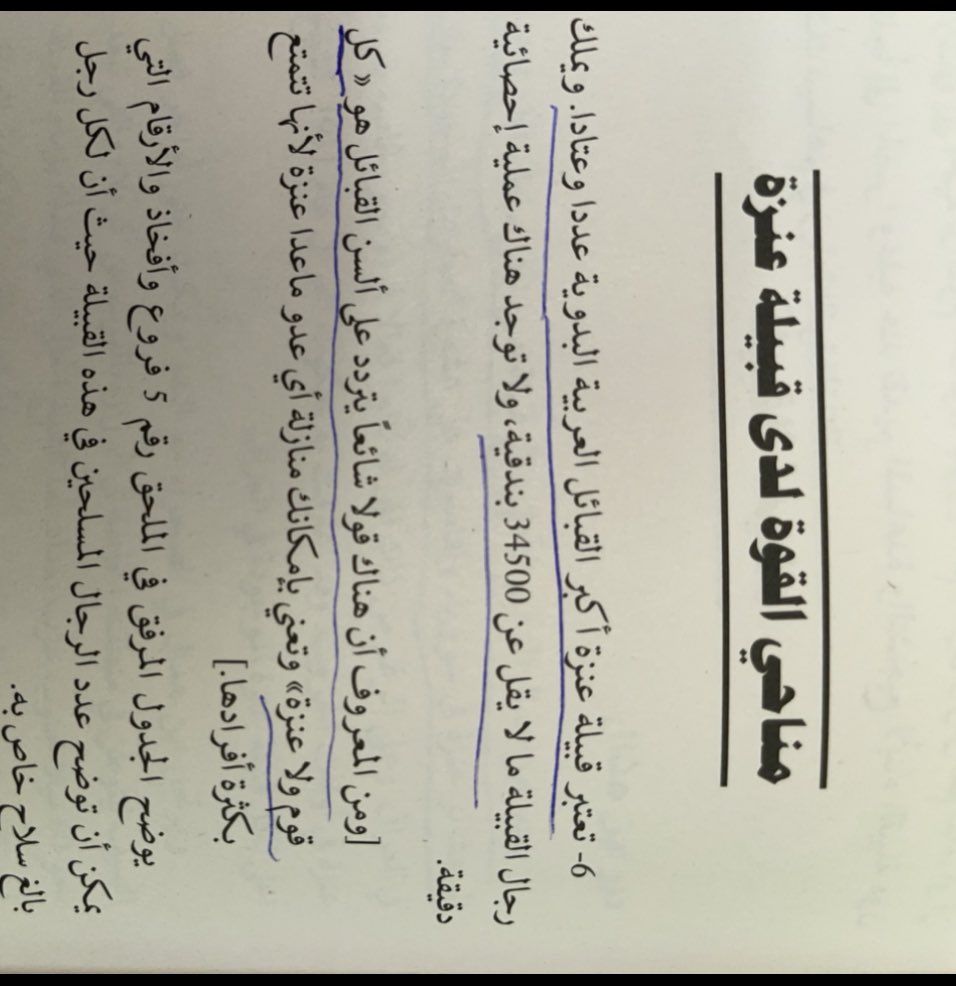 مناحي القوة لدى قبيلة عنزة
6- تعتبر قبيلة عنزة أكبر القبائل العربية البدوية عددا وعتادا. ويملك
رجال القبيلة ما لا يقل عن 34500 بندقية، ولا توجد هناك عملية إحصائية
دقيقة.
[ومن المعروف أن هناك قولا شائعاً يتردد على ألسن القبائل هو «كل
قوم ولا عنزة» وتعني بإمكانك منازلة أي عدو ماعدا عنزة لأنها تتمتع
بكثرة أفرادها.]
يوضح الجدول المرفق في الملحق رقم 5 فروع وأفخاذ والأرقام التي
يمكن أن توضح عدد الرجال المسلحين في هذه القبيلة حيث أن لكل رجل
بالغ سلاح خاص به.